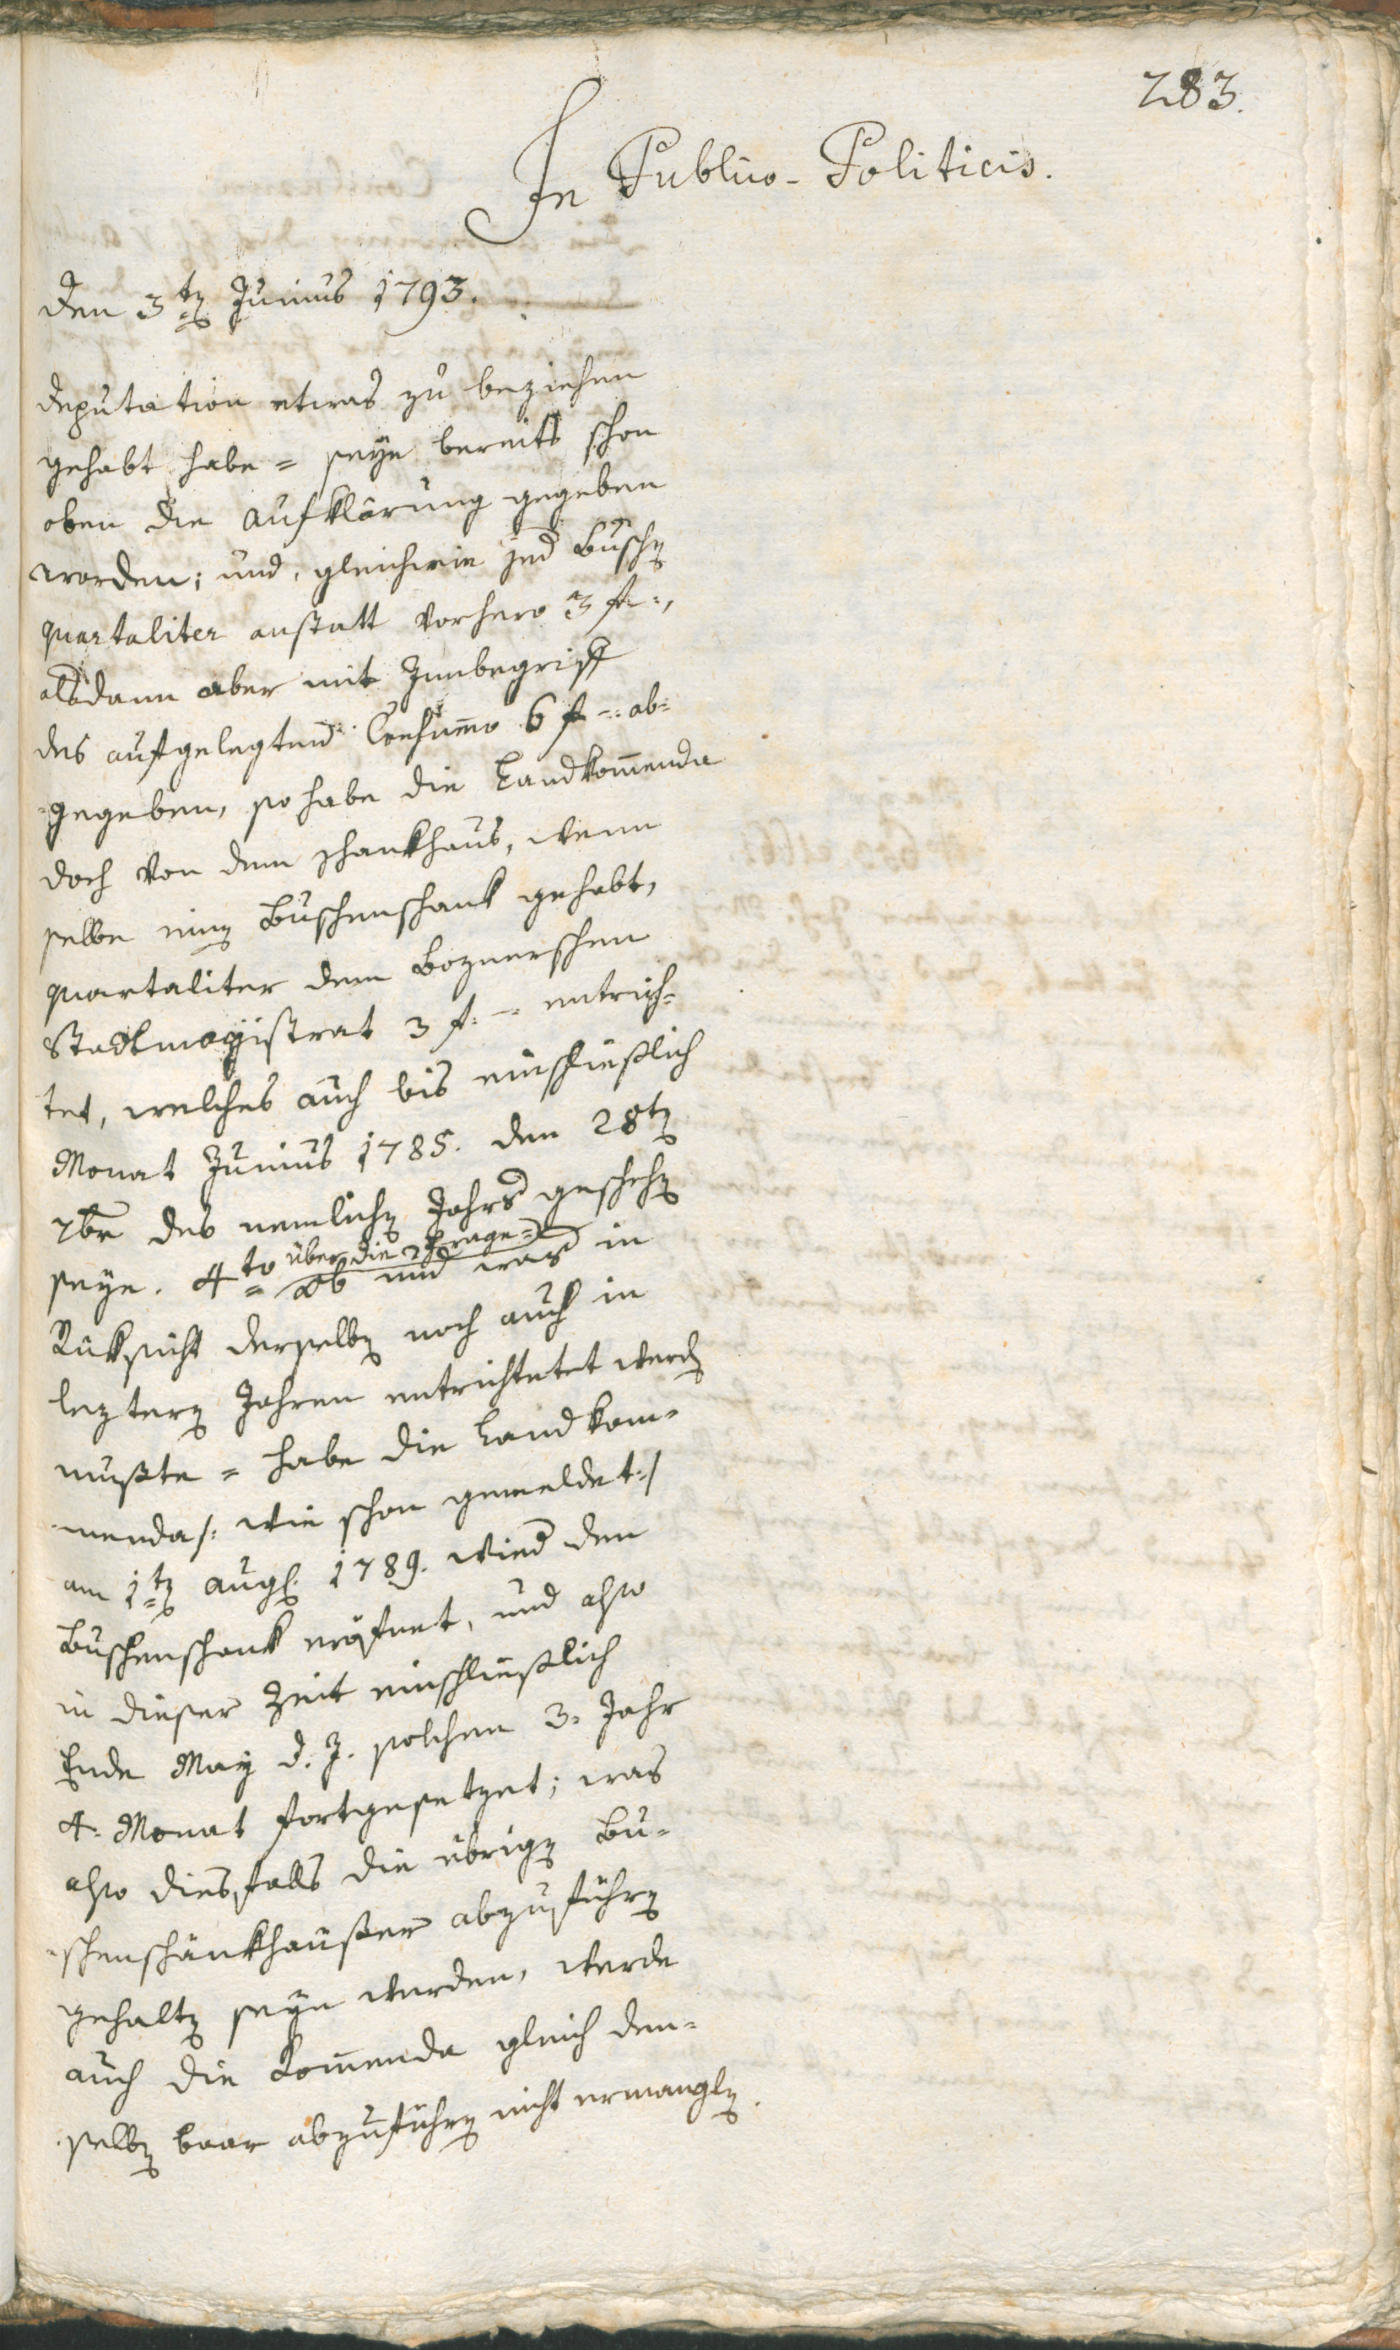 283.
In Publico-Politicis.
den 3ten Junius 1793.
deputation etwas zu beziehen
gehabt habe = seye bereits schon
oben die Aufklärung gegeben
worden; und, gleichwie jed Buschen
quartaliter anstatt vorhero 3 f.,
alsdann aber mit Innbegriff
des aufgelegten Consumo 6 f -: ab=
=gegeben, so habe die Landkom̄enda
doch von dem schankhaus, wenn
selbe einen Buschenschank gehabt,
quartaliter dem Boznerschen
Stadtmagistrat 3 f. -: entrich=
tet, welches auch bis einschließlich
Monat Junius 1785. den 28ten
7ber des nemlichen Jahrs geschehen
seye. 4to über die Frage =
ob und was in
Rüksicht derselben noch auch in
lezteren Jahren entrichtetet werden
mußte = habe die Landkom=
menda /: wie schon gemeldet :/
am 1ten aug. 1789. wied den
Buschenschank eröfnet, und also
in dieser Zeit einschließlich
Ende May d. J. solchen 3. Jahr
4. Monat fortgesetzet; was
also diesfalls die übrigen Bu=
=schenschänkhäußer abzuführen
gehalten seyn werden, werde
auch die Kom̄enda gleich den=
selben baar abzuführen nicht ermanglen.